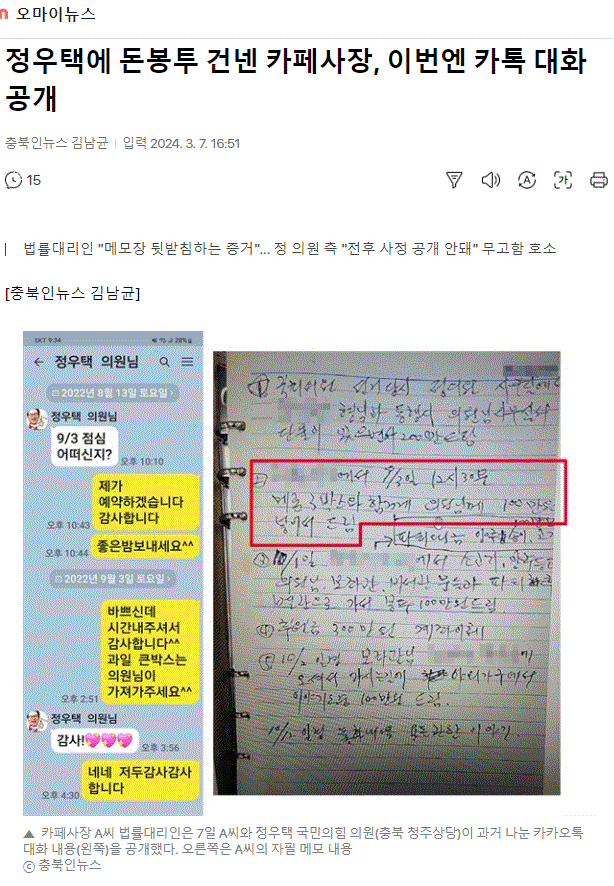 오마이뉴스
정우택에 돈봉투 건넨 카페사장, 이번엔 카톡 대화
공개
충북인뉴스 김남균 입력 2024. 3. 7. 16:51
15
가
법률대리인 "메모장 뒷받침하는 증거"... 정 의원 측 "전후 사정 공개 안돼" 무고함 호소
[충북인뉴스 김남균]
SKT 9:34 28%
정우택 의원님
2022년 8월 13일 토요일
정우택 의원님
9/3 점심
어떠신지?
오후 10:10
제가
예약하겠습니다
감사합니다
오후 10:43
좋은밤보내세요^^
오후 10:44
2022년 9월 3일 토요일
바쁘신데
시간내주셔서
감사합니다^^
과일 큰박스는
의원님이
가져가주세요^^
오후 2:51
정우택 의원님
감사!💖💖💖
오후 3:56
네네 저두감사감사
합니다
오후 4:30
① 국회의원 선거당시
의원님
200만 드림
② 에서 9/3일 12시30분
메론 3박스와 함께 의원님께 100만원
넣어서 드림
③ 10/1일 에서
의원님, 보좌관, 비서관
100만원 드림.
④ 후원금 300만원 계좌이체
⑤ 보좌관님 에
오셔서
100만원 드림.
▲ 카페사장 A씨 법률대리인은 7일 A씨와 정우택 국민의힘 의원(충북 청주상당)이 과거 나눈 카카오톡
대화 내용(왼쪽)을 공개했다. 오른쪽은 A씨의 자필 메모 내용
ⓒ 충북인뉴스